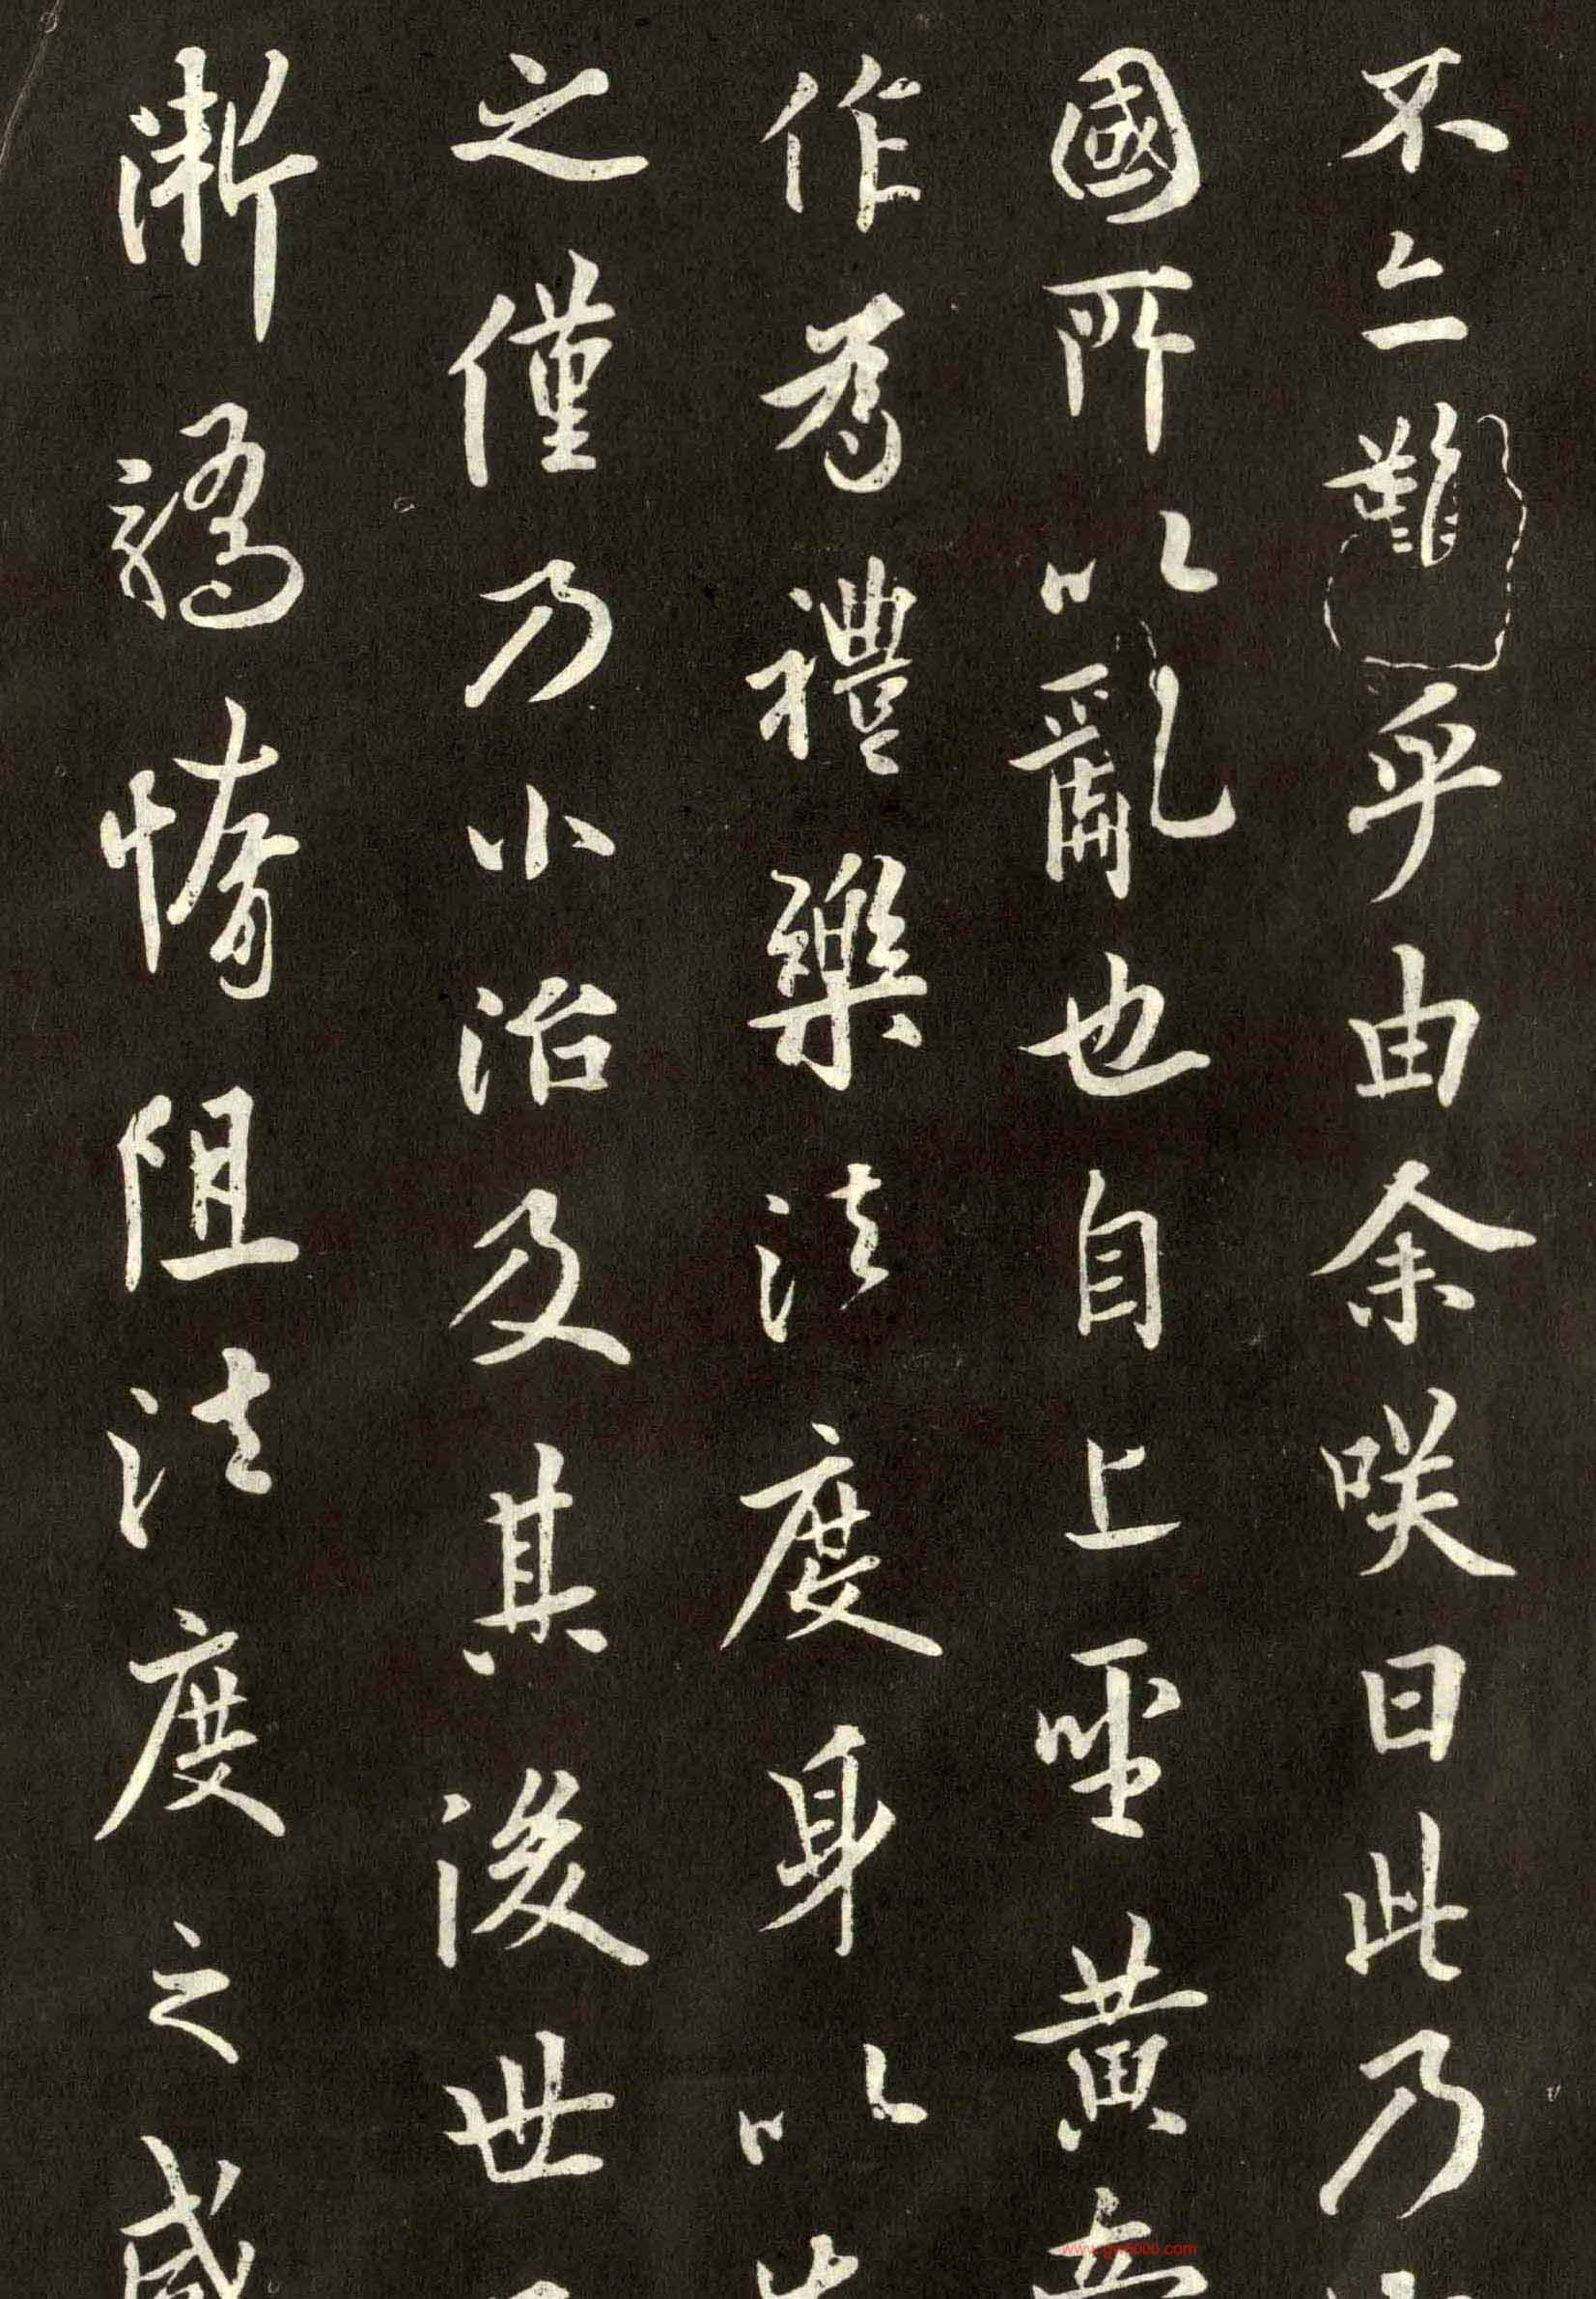 不亦難乎由余咲曰此乃
國所以亂也自上聖黃帝
作為禮樂法度身以先
之僅乃小治及其後世
漸驕惰阻法度之威
www.gg5000.com